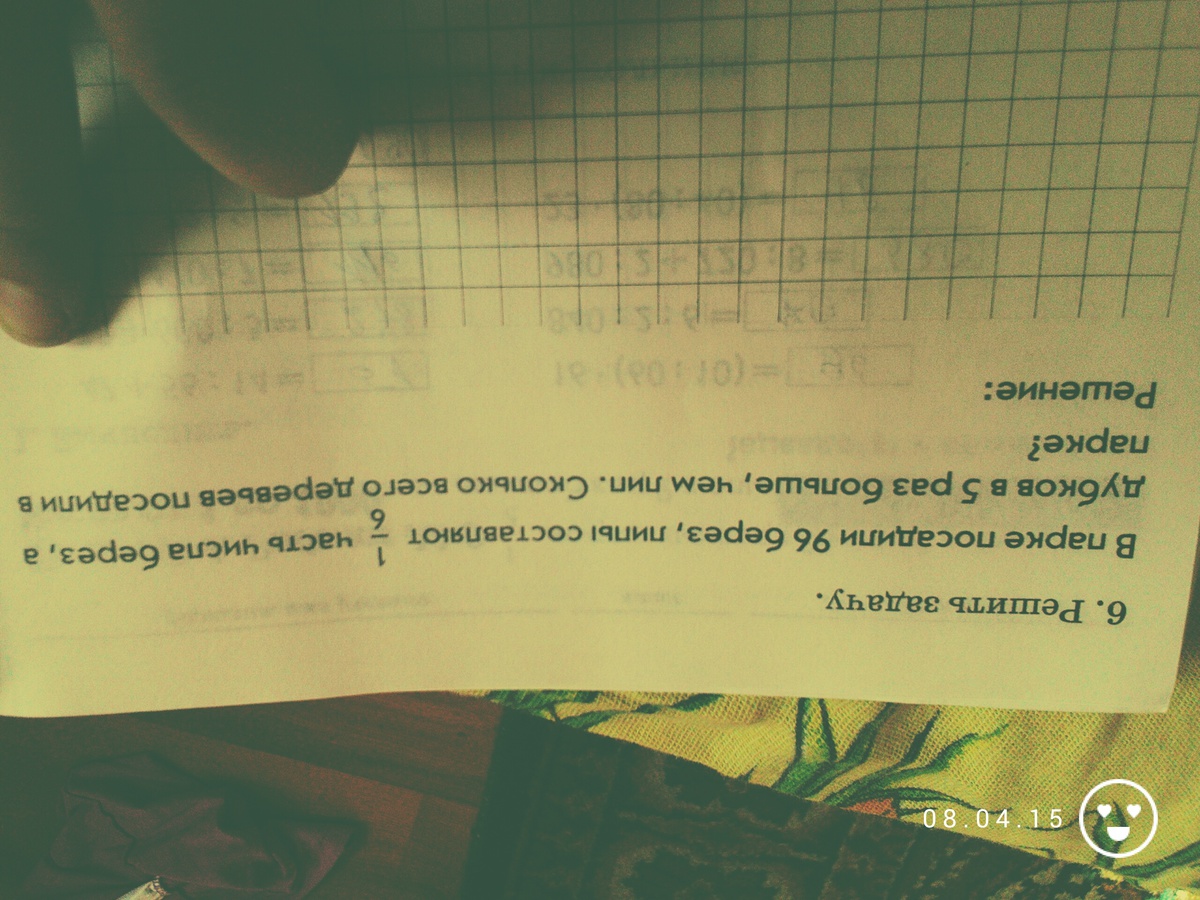 6. Решить задачу.
В парке посадили 96 берез, липы составляют 1/6 часть числа берез, а
дубков в 5 раз больше, чем лип. Сколько всего деревьев посадили в
парке?
Решение:
08.04.15